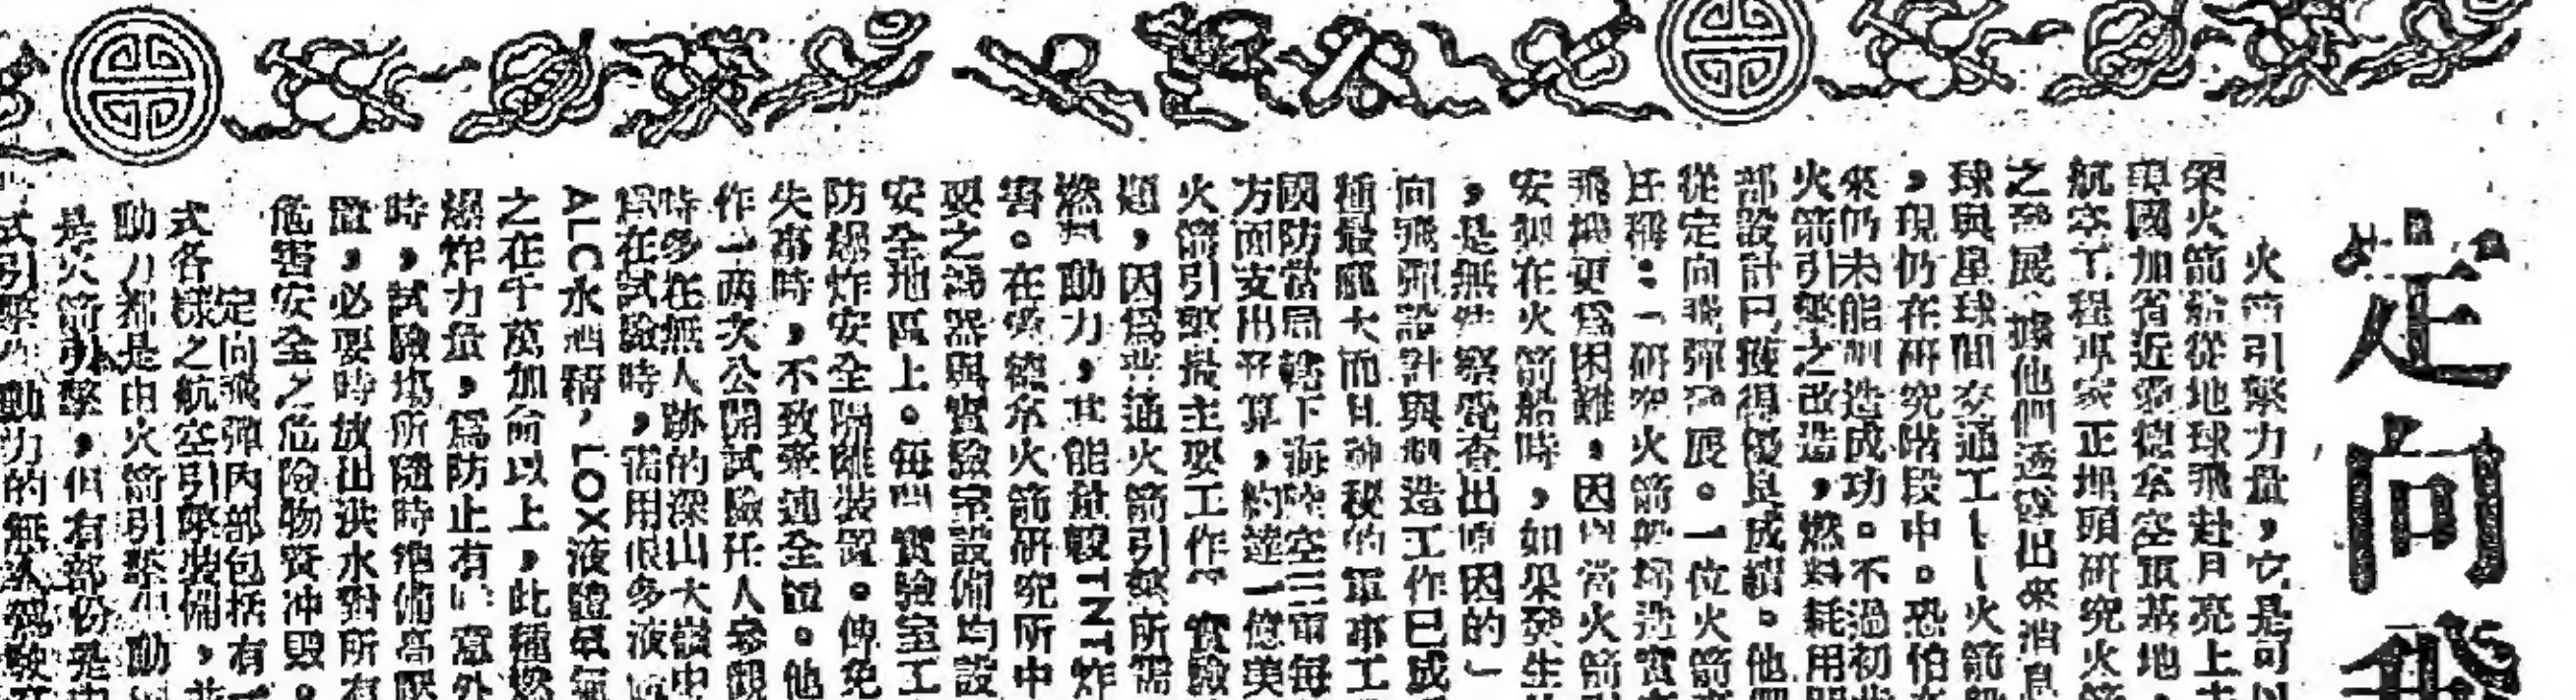 定向飛
火箭引擎力量，它是可以
架火箭船從地球飛赴月亮上去
美國加省近愛德華空軍基地，
航空工程專家正埋頭研究火箭
之發展、據他們透露出來消息
球與星球間交通工——火箭船
，現仍在研究階段中。恐怕在
來仍未能制造成功。不過初步
火箭引擎之改造，燃料耗用問
部設計已獲得優良成績。他們
從定向飛彈發展。一位火箭專
任稱：「研究火箭船構造實在
飛機更爲困難，因爲當火箭引
安裝在火箭船時，如果發生
，是無法察覺查出原因的」
向飛彈設計與制造工作已成
種最龐大而且神秘的軍事工
國防當局轄下海陸空三軍每
方面支出預算，約達一億美
火箭引擎最主要工作 實驗
題，因爲普通火箭引擎所需
燃料動力，其能量較TNT炸
害。在愛德華火箭研究所中
要之儀器與實驗室設備均設
安全地區上。每間實驗室工
防爆炸安全隔離裝置。俾免
失事時，不致牽連全體。他
作一两次公開試驗任人參觀
時多在無人跡的深山大嶺中
爲在試驗時，需用很多液體
ALC水酒精，LOX液體氧氣
之在千萬加侖以上，此種燃
爆炸力量，爲防止有 意外
時，試驗塲所隨時准備高壓
置，必要時放出洪水對所有
危害安全之危險物資冲毀。
定向飛彈內部包括有一
式各樣之航空引擎裝備，並
動力都是由火箭引擎 動
是火箭引擎，但有部份是由
式引擎作動力的無人駕駛